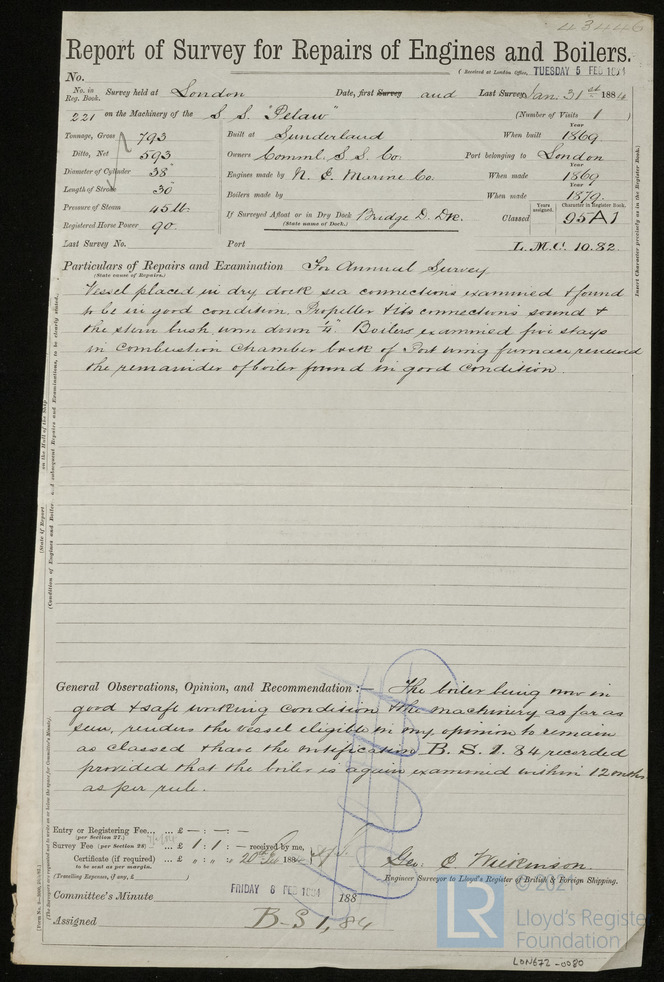 43446
Report of Survey for Repairs of Engines and Boilers.
(Received at London Office, TUESDAY 5 FEB 1884
No.
No. in Reg. Book. Survey held at London Date, first Survey and Last Survey Jan. 31st 1884
221 on the Machinery of the S S. "Pelaw" (Number of Visits 1 )
Tonnage, Gross 793 Built at Sunderland When built Year 1869
Ditto, Net 593 Owners Comml. S. S. Co. Port belonging to London
Diameter of Cylinder 38" Engines made by N. E. Marine Co. When made Year 1869
Length of Stroke 30" Boilers made by When made Year 1879
Pressure of Steam 45 lb If Surveyed Afloat or in Dry Dock Bridge D. Dk. Classed Years assigned. Character in Register Book. 95A1
(State name of Dock.)
Registered Horse Power 90
Last Survey No. Port L.M.C. 10.82.
Particulars of Repairs and Examination For Annual Survey
(State name of Repairs.)
Vessel placed in dry dock sea connections examined & found
to be in good condition. Propeller & its connections sound &
the stern bush worn down 1/4". Boilers examined five stays
in combustion chamber back of Port wing furnace renewed
the remainder of boiler found in good condition.
General Observations, Opinion, and Recommendation :— The boiler being now in
good & safe working condition & the machinery as far as
seen, renders the vessel eligible in my opinion to remain
as classed & have the notification B. S. 1. 84 recorded
provided that the boiler is again examined within 12 months
as per rule.
Entry or Registering Fee... ... £ — : — : —
(per Section 27.)
Survey Fee (per Section 28) ... £ 1 : 1 : — received by me,
Certificate (if required) ... £ " : " : " 20th 188
to be sent as per margin.
(Travelling Expenses, if any, £ )
Geo. C Wilkinson.
Engineer Surveyor to Lloyd's Register of British & Foreign Shipping.
Committee's Minute FRIDAY 8 FEB 1884 188
Assigned B.S 1, 84
Insert Character precisely as in the Register Book.)
© 2021
LR
Lloyd's Register
Foundation
LON672-0080